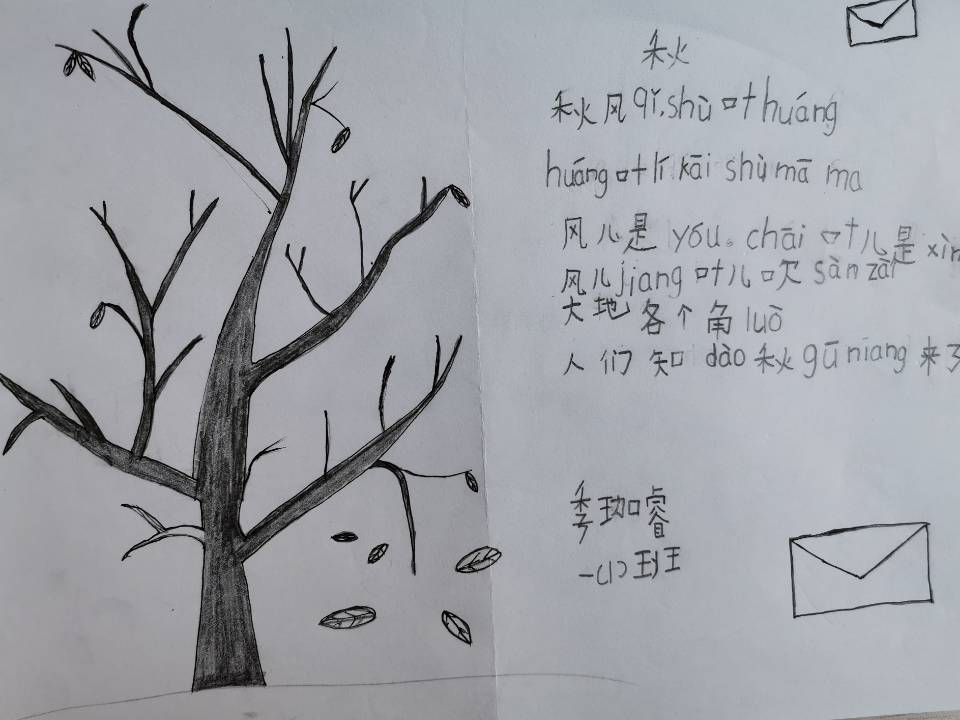 秋
秋风qǐ,shù叶huáng
huáng叶lí kāi shù mā ma
风儿是yóu。chāi叶儿是xìn
风儿jiang叶儿吹sàn zài
大地各个角luò
人们知dào秋gū niang来了
季珈睿
一(1)班